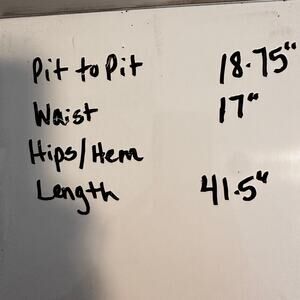 Pit to Pit 18.75"
Waist 17"
Hips/Hem
Length 41.5"